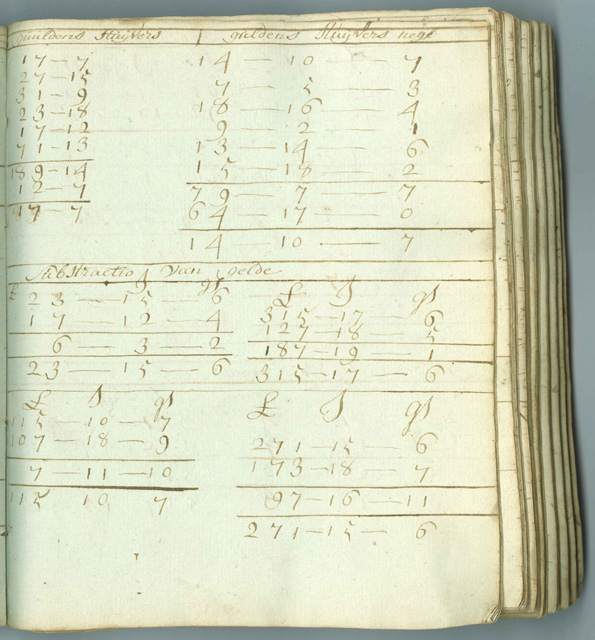 guldens Stuyvers
17 — 7
27 — 15
31 — 9
23 — 18
17 — 12
71 — 13
189 — 14
12 — 7
17 — 7
guldens Stuyvers
14 — 10 — 7
7 — 5 — 3
18 — 16 — 4
9 — 2 — 1
13 — 14 — 6
15 — 18 — 2
79 — 7 — 7
64 — 17 — 0
14 — 10 — 7
Subtractio van gelde
£ S gs
23 — 15 — 6
17 — 12 — 4
6 — 3 — 2
23 — 15 — 6
£ S gs
315 — 17 — 6
127 — 18 — 5
187 — 19 — 1
315 — 17 — 6
£ S gs
115 — 10 — 7
107 — 18 — 9
7 — 11 — 10
115 10 7
£ S gs
271 — 15 — 6
173 — 18 — 7
97 — 16 — 11
271 — 15 — 6